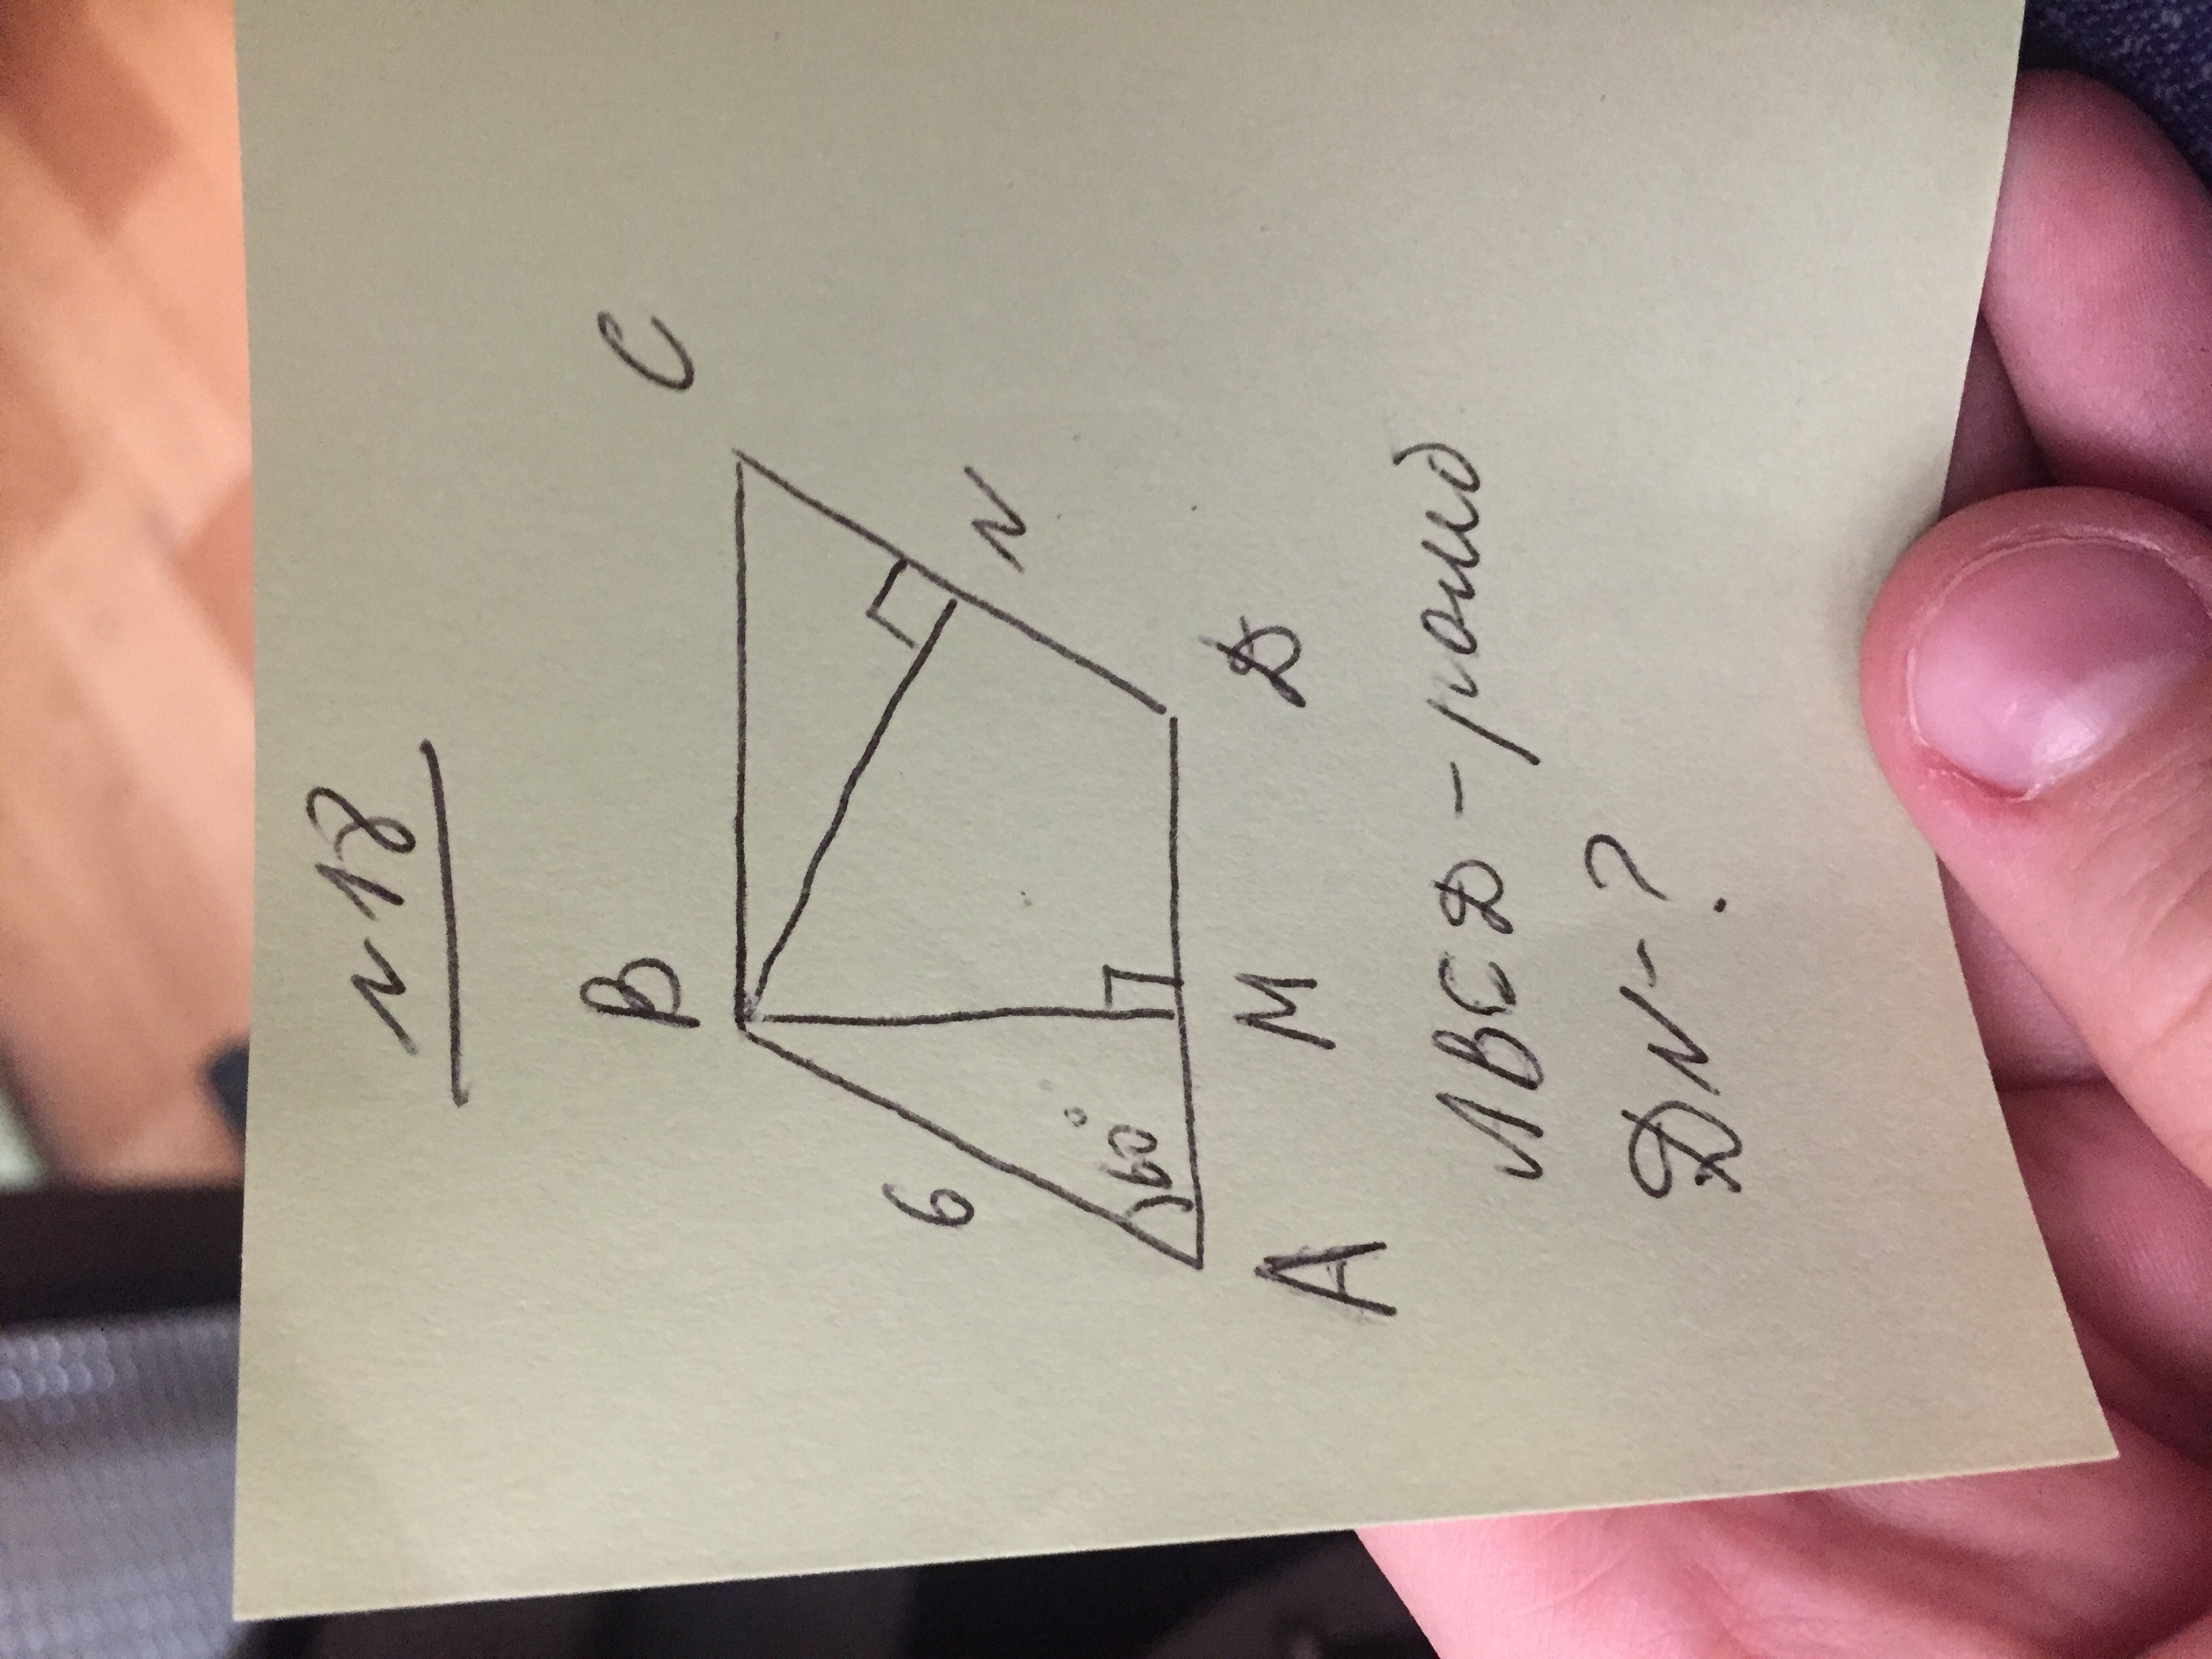 N 18
B C
6
60°
N
A M D
ABCD - ромб
DN - ?